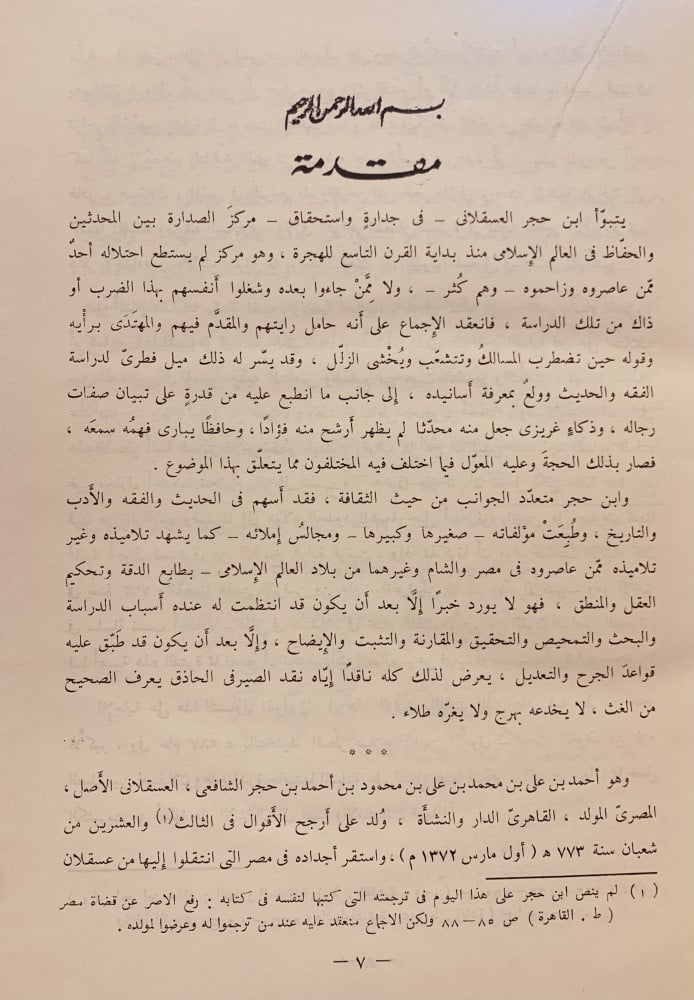 بسم الله الرحمن الرحيم
مقدمة
يتبوّأ ابن حجر العسقلانى ــ فى جدارةٍ واستحقاق ــ مركزَ الصدارة بين المحدثين
والحفّاظ فى العالم الإِسلامى منذ بداية القرن التاسع للهجرة ، وهو مركز لم يستطع احتلاله أحدٌ
ممّن عاصروه وزاحموه ــ وهم كُثر ــ ، ولا مِمَّنْ جاءوا بعده وشغلوا أَنفسهم بهذا الضرب أو
ذاك من تلك الدراسة ، فانعقد الإِجماع على أَنه حامل رايتهم والمقدَّم فيهم والمهتَدَى برأْيه
وقوله حين تضطرب المسالكُ وتتشعّب ويُخْشى الزلَل ، وقد يسّر له ذلك ميل فطرىّ لدراسة
الفقه والحديث وولعٌ بمعرفة أَسانيده ، إِلى جانب ما انطبع عليه من قدرةٍ على تبيان صفات
رجاله ، وذكاءٍ غريزى جعل منه محدّثا لم يظهر أَرشح منه فؤادًا ، وحافظًا يبارى فهمُه سمعَه ،
فصار بذلك الحجةَ وعليه المعوّل فيما اختلف فيه المختلفون مما يتعلّق بهذا الموضوع .
وابن حجر متعدّد الجوانب من حيث الثقافة ، فقد أَسهم فى الحديث والفقه والأَدب
والتاريخ ، وطُبِعَتْ مؤلفاته ــ صغيرها وكبيرها ــ ومجالسُ إِملائه ــ كما يشهد تلاميذه وغير
تلاميذه ممّن عاصروه فى مصر والشام وغيرهما من بلاد العالم الإِسلامى ــ بطابع الدقة وتحكيم
العقل والمنطق ، فهو لا يورد خبرًا إِلَّا بعد أَن يكون قد انتظمت له عنده أَسباب الدراسة
والبحث والتمحيص والتحقيق والمقارنة والتثبت والإِيضاح ، وإِلَّا بعد أَن يكون قد طَبّق عليه
قواعدَ الجرح والتعديل ، يعرض لذلك كله ناقدًا إِيّاه نقد الصيرفى الحاذق يعرف الصحيح
من الغث ، لا يخدعه بهرج ولا يغرّه طلاء .
* * *
وهو أحمد بن على بن محمد بن على بن محمود بن أحمد بن حجر الشافعى ، العسقلانى الأَصل ،
المصرىّ المولد ، القاهرىّ الدار والنشأَة ، وُلد على أَرجح الأَقوال فى الثالث(١) والعشرين من
شعبان سنة ٧٧٣ ه ( أول مارس ١٣٧٢ م ) ، واستقر أجداده فى مصر التى انتقلوا إليها من عسقلان
( ١ ) لم ينص ابن حجر على هذا اليوم فى ترجمته التى كتبها لنفسه فى كتابه : رفع الاصر عن قضاة مصر
( ط . القاهرة ) ص ٨٥ ــ ٨٨ ولكن الاجماع منعقد عليه عند من ترجموا له وعرضوا لمولده .
ــ ٧ ــ